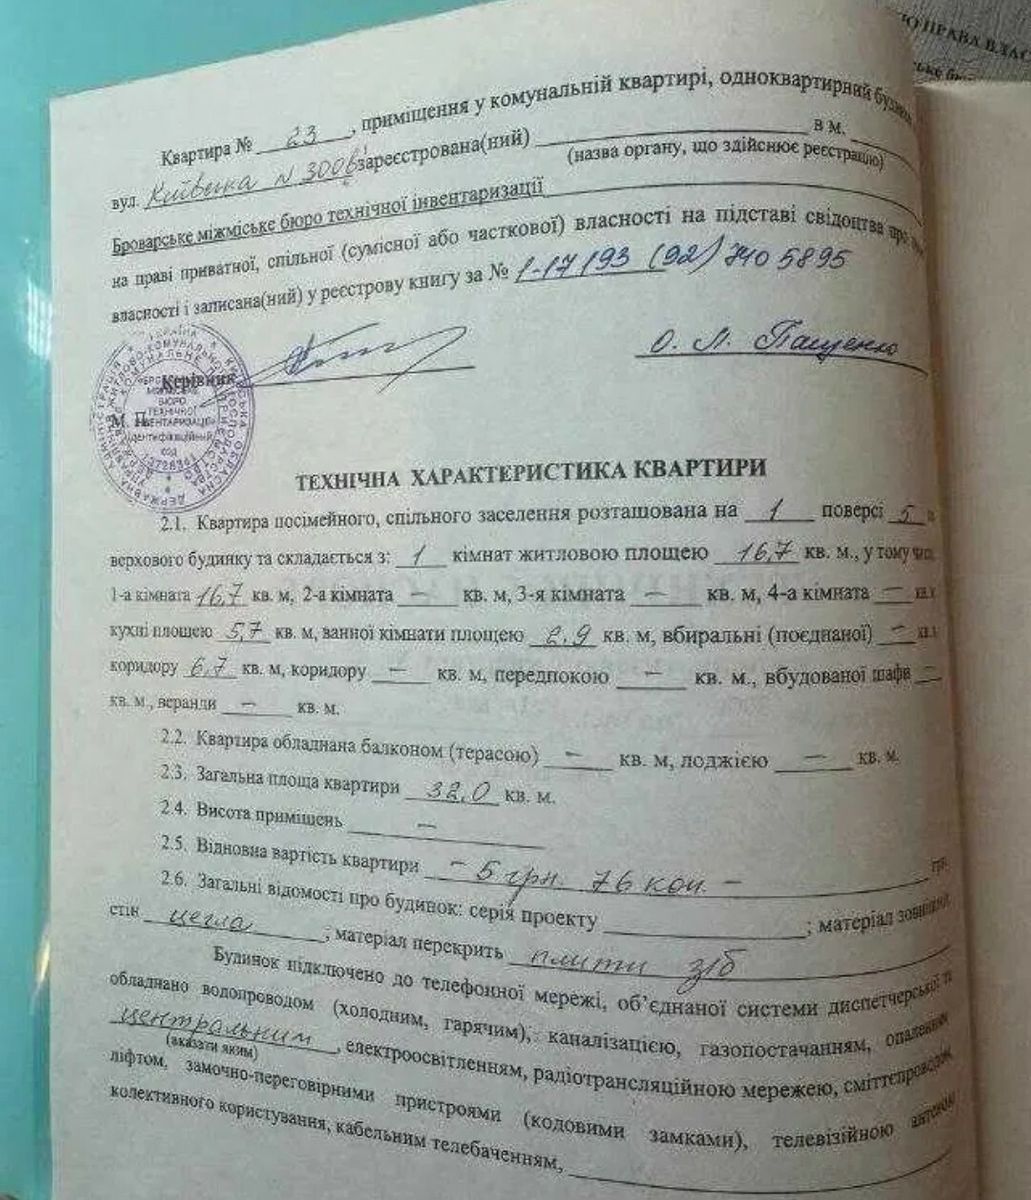 Ю ПРАВА ВЛАС
Квартира № 23, приміщення у комунальній квартирі, одноквартирний
вул. Київська № 300б зареєстрована(ний) ____ в м.
(назва органу, що здійснює реєстрацію)
Броварське міжміське бюро технічної інвентаризації
на праві приватної, спільної (сумісної або часткової) власності на підставі свідоцтва про
власності і записана(ний) у реєстрову книгу за № 1-17193 (92) 5895
О. Л. Пащенко
Керівник
М. П.
БЮРО
ТЕХНІЧНОЇ
ІНВЕНТАРИЗАЦІЇ
ідентифікаційний
код
ТЕХНІЧНА ХАРАКТЕРИСТИКА КВАРТИРИ
2.1. Квартира посімейного, спільного заселення розташована на 1 поверсі 5
верхового будинку та складається з: 1 кімнат житловою площею 16,7 кв. м., у тому
1-а кімната 16,7 кв. м, 2-а кімната — кв. м, 3-я кімната — кв. м, 4-а кімната — кв.
кухні площею 5,7 кв. м, ванної кімнати площею 2.9 кв. м, вбиральні (поєднаної) — кв.
коридору 6,7 кв. м, коридору — кв. м, передпокою — кв. м., вбудованої шафи —
кв. м., веранди — кв. м.
2.2. Квартира обладнана балконом (терасою) — кв. м, лоджією — кв. м.
2.3. Загальна площа квартири 32,0 кв. м.
2.4. Висота приміщень —
2.5. Відновна вартість квартири – 5 грн. 76 коп. – грн
2.6. Загальні відомості про будинок: серія проекту ____; матеріал зовнішніх
стін цегла, матеріал перекрить плити з/б
Будинок підключено до телефонної мережі, об’єднаної системи диспетчерської та
обладнано водопроводом (холодним, гарячим), каналізацією, газопостачанням, опаленням
центральним, електроосвітленням, радіотрансляційною мережею, сміттєпроводом,
(вказати яким)
ліфтом, замочно-переговірними пристроями (кодовими замками), телевізійною антеною
колективного користування, кабельним телебаченням,